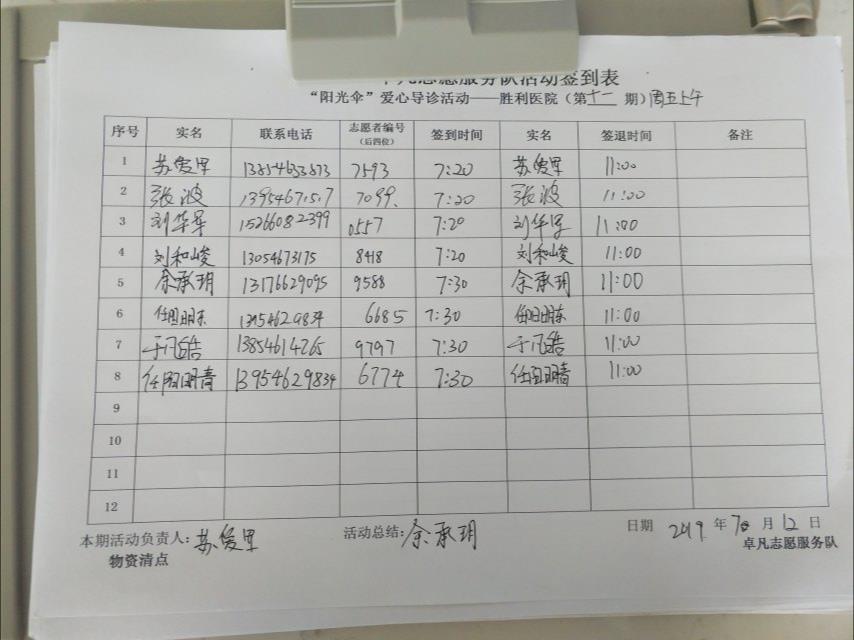 卓凡志愿服务队活动签到表
“阳光伞”爱心导诊活动——胜利医院（第十一期）周五上午
序号 实名 联系电话 志愿者编号（后四位） 签到时间 实名 签退时间 备注
1 苏俊里 13854633873 7593 7:20 苏俊里 11:00
2 张波 1395467157 7099. 7:20 张波 11:00
3 刘华军 15266082399 0557 7:20 刘华军 11:00
4 刘和峻 13054673175 8418 7:20 刘和峻 11:00
5 余承玥 13176629095 9588 7:30 余承玥 11:00
6 6685 7:30 11:00
7 于凡皓 13854614265 9797 7:30 于凡皓 11:00
8 13954629834 6774 7:30 11:00
9
10
11
12
本期活动负责人：苏俊里 活动总结：余承玥 日期 2019年7月12日
物资清点 卓凡志愿服务队